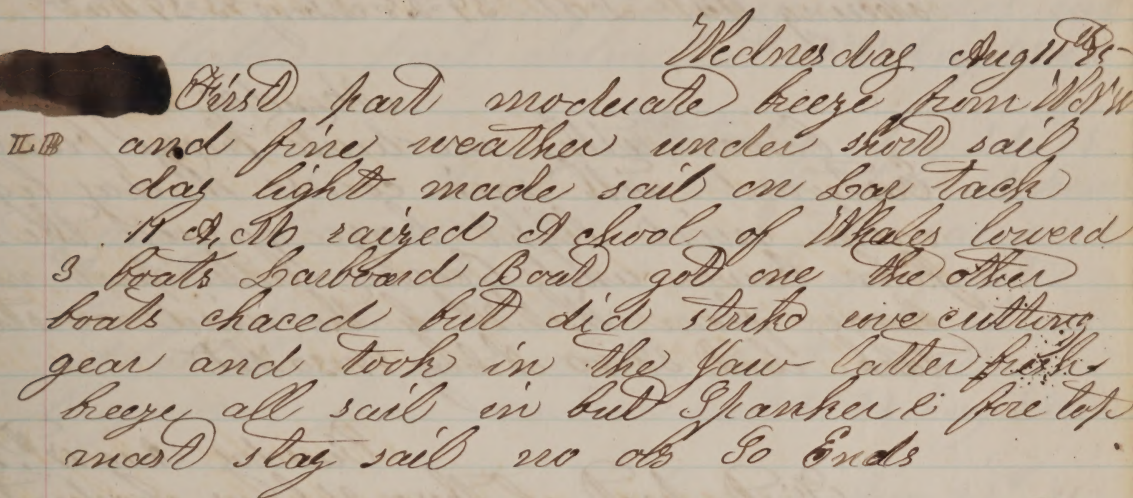 Wednesday Aug 11th
First part moderate breeze from WNW
LB and fine weather under short sail
day light made sail on Lar tack
11 A,M raized A chool of Whales lowerd
3 boats Larboard Boat got one the other
boats chaced but did strike cutting
gear and took in the Jaw latter fresh
breeze all sail in but Spanker & fore top
mast stay sail no obs So Ends